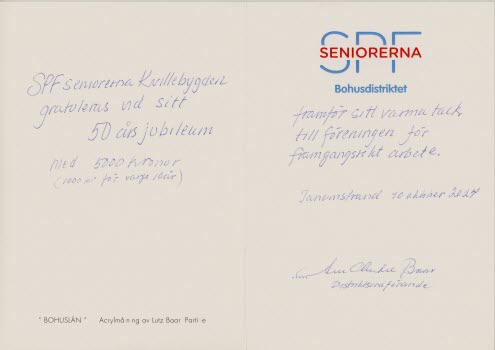 SPF seniorerna Kvillebygden
gratuleras vid sitt
50 års jubileum
med 5000 kronor
(1000 kr för varje 10 år)
" BOHUSLÄN " Acrylmålning av Lutz Baar
SPF
SENIORERNA
Bohusdistriktet
framför sitt varma tack
till föreningen för
framgångsrikt arbete.
Tanumstrand 10 oktober
Ann Charlie Baar
Distriktsordförande